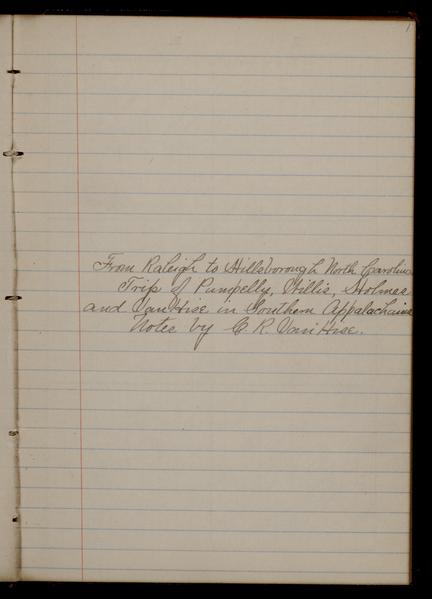 1
From Raleigh to Hillsborough North Carolina
Trip of Pumpelly, Willis, Holmes
and Van Hise in Southern Appalachians
Notes by C. R. Van Hise.